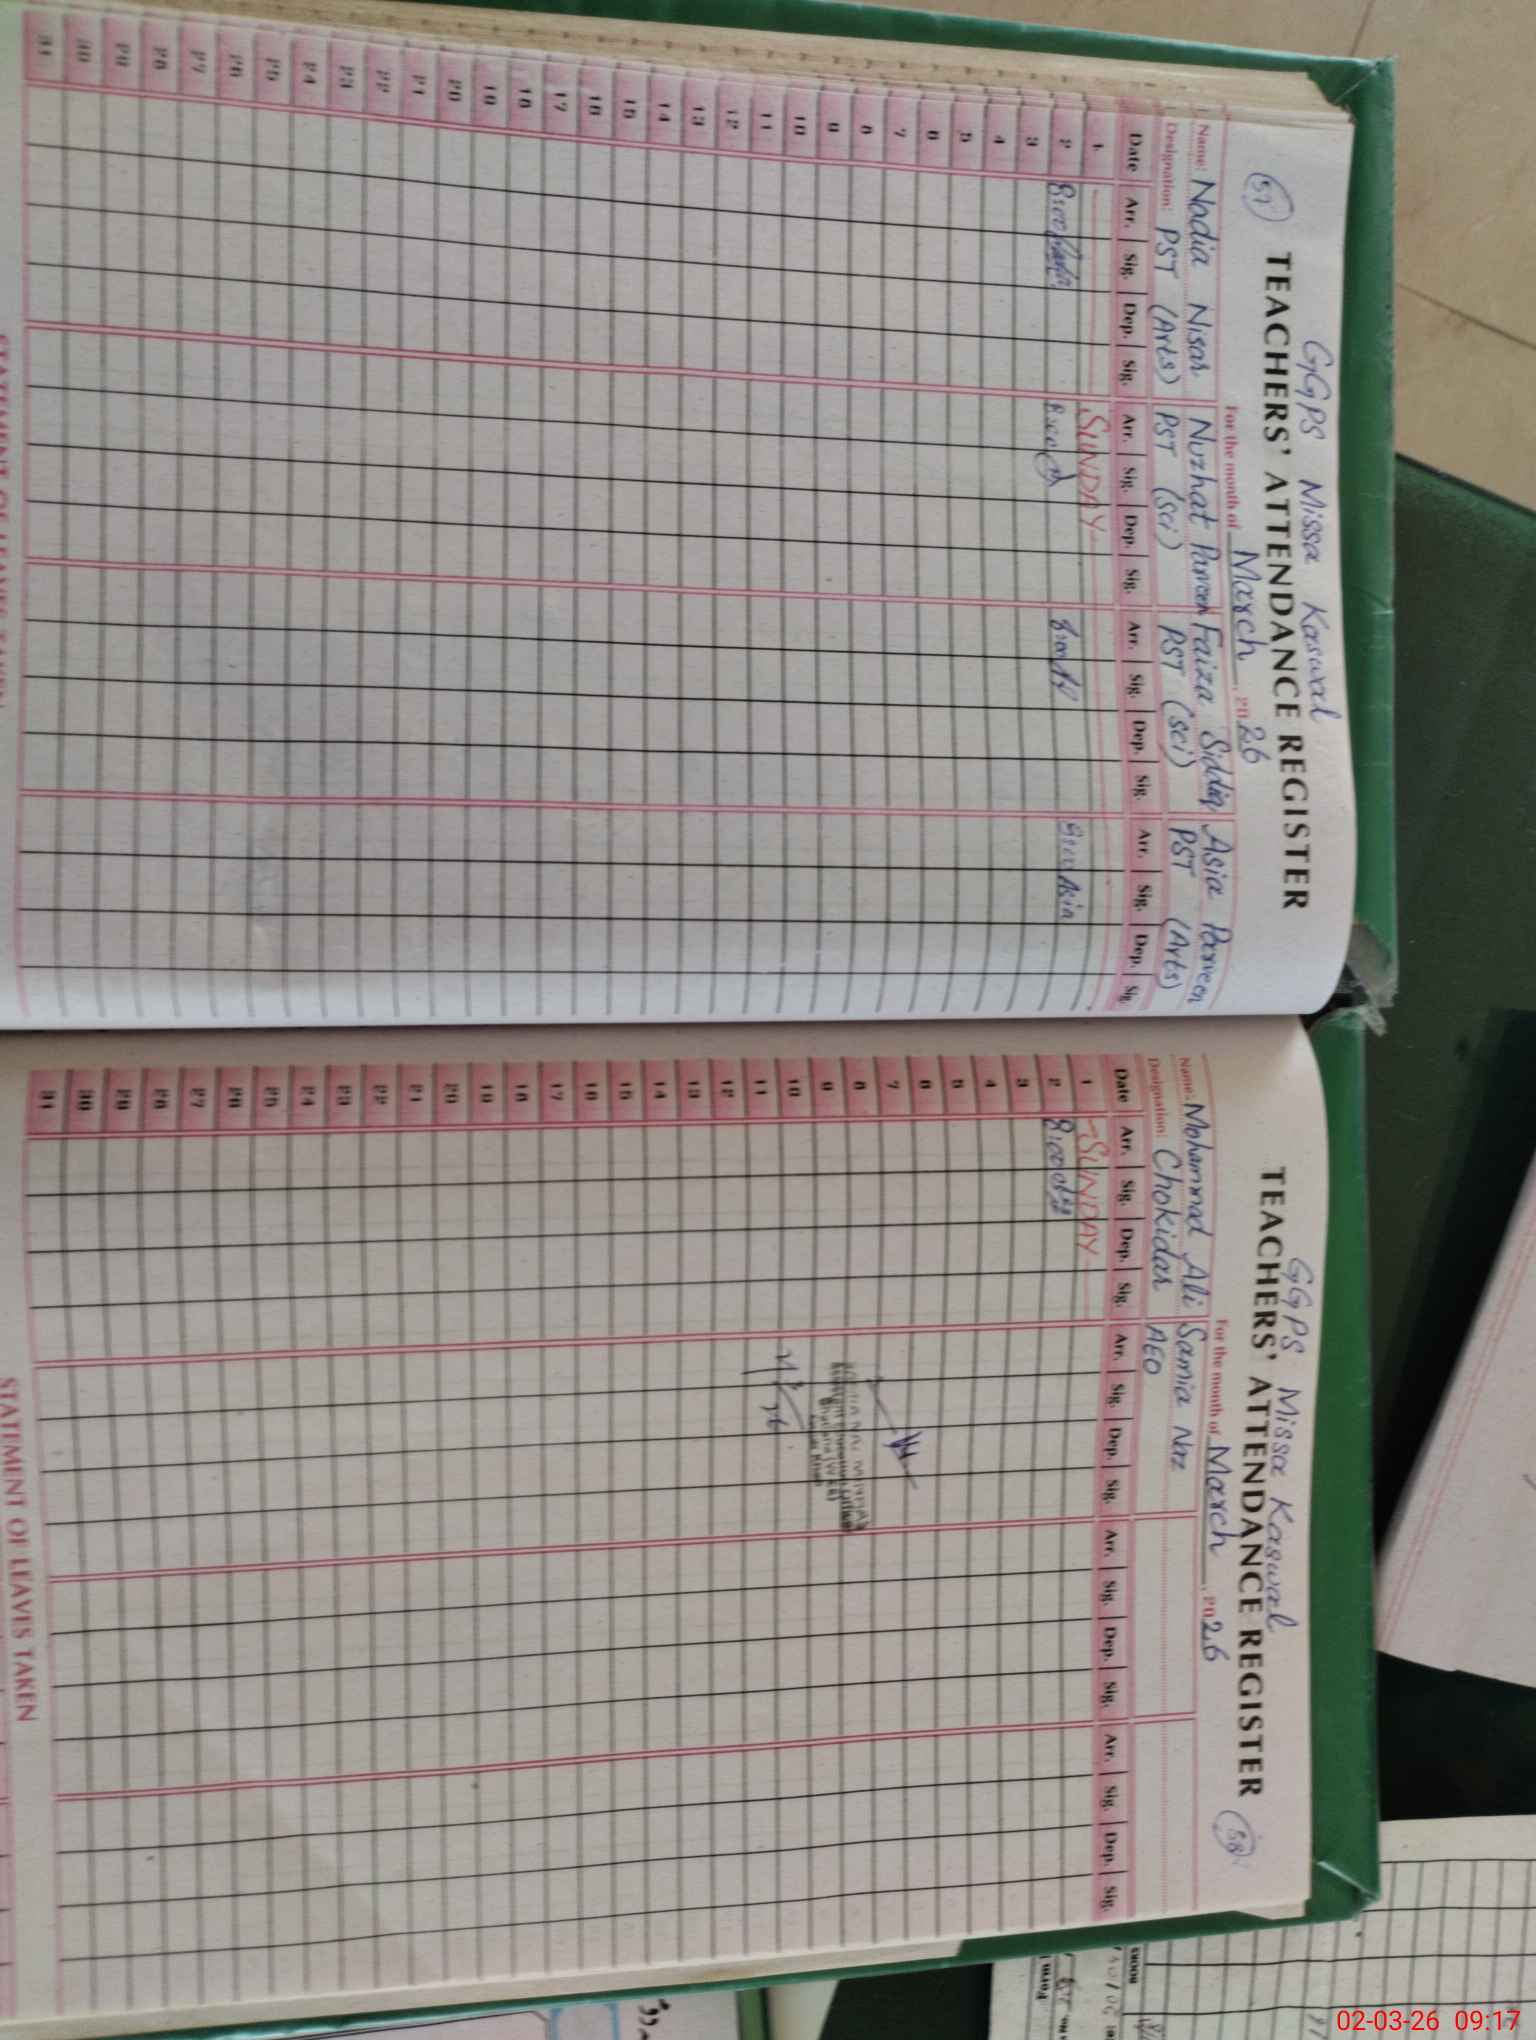 57
GGPS Missa Kaswal
TEACHERS' ATTENDANCE REGISTER
For the month of March, 2026
Name: Nadia Nisar Nuzhat Parveen Faiza Siddiq Asia Parveen
Designation: PST (Arts) PST (sci) PST (sci) PST (Arts)
Date Arr. Sig. Dep. Sig. Arr. Sig. Dep. Sig. Arr. Sig. Dep. Sig. Arr. Sig. Dep. Sig
1 SUNDAY
2 8:00 8:00 8:00 8:00 Asia
3
4
5
6
7
8
9
10
11
12
13
14
15
16
17
18
19
20
21
22
23
24
25
26
27
28
29
30
31
STATEMENT OF LEAVES TAKEN
GGPS Missa Kaswal
58
TEACHERS' ATTENDANCE REGISTER
For the month of March, 2026
Name: Mohammad Ali Samia Naz
Designation: Chokidar AEO
Date Arr. Sig. Dep. Sig. Arr. Sig. Dep. Sig. Arr. Sig. Dep. Sig. Arr. Sig. Dep. Sig.
1 SUNDAY
2 8:00
3
4
5
6
7
8
9
10
11
12
13
14
15
16
17
18
19
20
21
22
23
24
25
26
27
28
29
30
31
STATEMENT OF LEAVES TAKEN
02-03-26 09:17